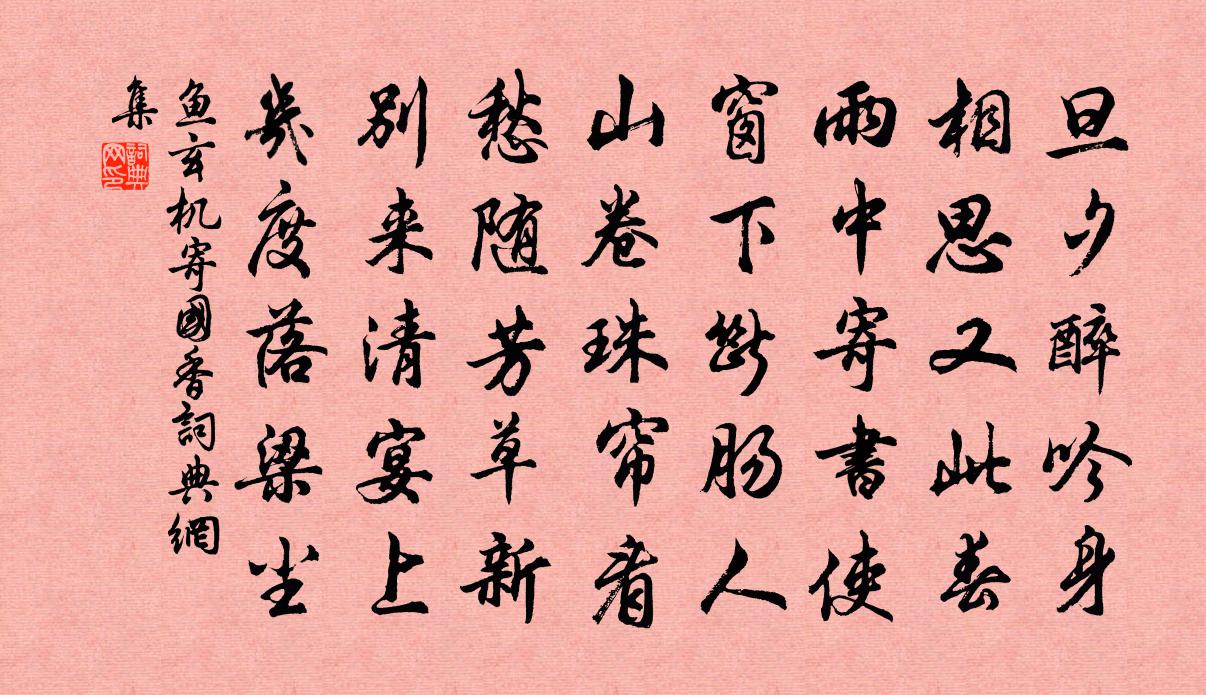 旦夕醉吟身
相思又此春
雨中寄書使
窗下斷肠人
山卷珠帘看
愁随芳草新
别来清宴上
幾度落梁尘
鱼玄机寄國香詞典網
集
詞典
网印